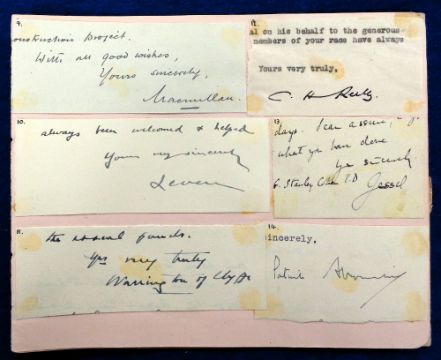 9.
onstruction project.
With all good wishes,
Yours sincerely,
Macmillan.
10.
always been welcomed & helped
Yours very sincerely
Leven
11.
the usual funds.
Yrs very truly
Warrington of Clyffe
12.
al on his behalf to the generous
members of your race have always
Yours very truly,
C. H. Reilly.
13.
days. I can assure,
what you have done
Yrs sincerely
Gessel
14.
incerely,
Patrick